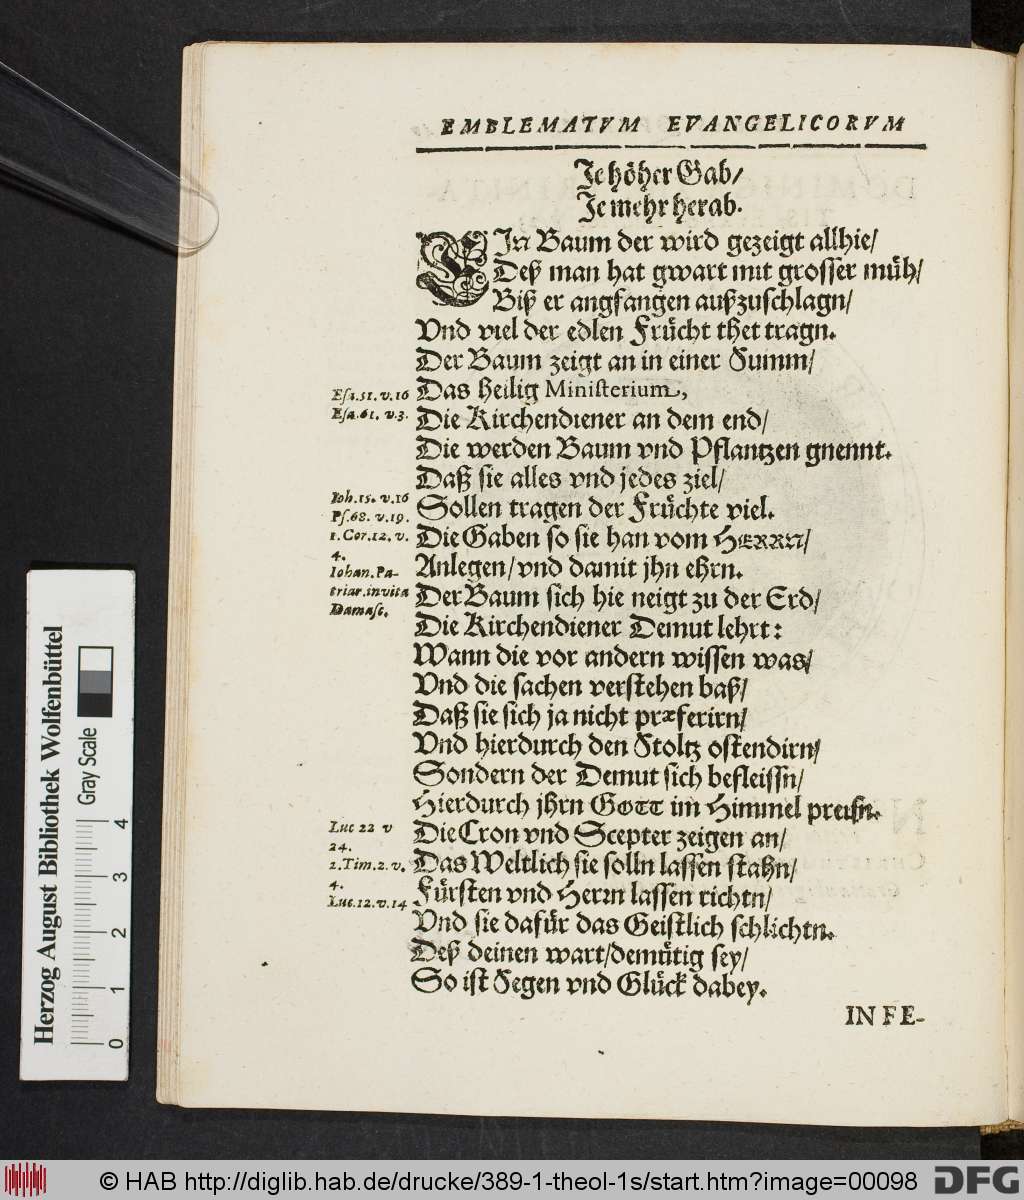 EMBLEMATVM EVANGELICORVM
Je höher Gab/
Je mehr herab.
EIn Baum der wird gezeigt allhie/
Deß man hat gwart mit grosser müh/
Biß er angfangen außzuschlagn/
Vnd viel der edlen Frücht thet tragn.
Der Baum zeigt an in einer Summ/
Esa. 51. v. 16
Das heilig Ministerium,
Esa. 61. v. 3.
Die Kirchendiener an dem end/
Die werden Baum vnd Pflantzen gnennt.
Daß sie alles vnd jedes ziel/
Joh. 15. v. 16
Sollen tragen der Früchte viel.
Ps. 68. v. 19.
1. Cor. 12. v.
4.
Die Gaben so sie han vom HERRN/
Anlegen/ vnd damit jhn ehrn.
Iohan. Pa-
triar. in vita
Damasc.
Der Baum sich hie neigt zu der Erd/
Die Kirchendiener Demut lehrt:
Wann die vor andern wissen was/
Vnd die sachen verstehen baß/
Daß sie sich ja nicht præferirn/
Vnd hierdurch den Stoltz ostendirn/
Sondern der Demut sich befleissn/
Hierdurch jhrn GOTT im Himmel preisn.
Luc 22 v
24.
Die Cron vnd Scepter zeigen an/
2. Tim. 2. v.
4.
Das Weltlich sie solln lassen stahn/
Luc. 12. v. 14
Fürsten vnd Herrn lassen richtn/
Vnd sie dafür das Geistlich schlichtn.
Deß deinen wart/ demütig sey/
So ist Segen vnd Glück dabey.
IN FE-
Herzog August Bibliothek Wolfenbüttel
Gray Scale
0 1 2 3 4
© HAB http://diglib.hab.de/drucke/389-1-theol-1s/start.htm?image=00098
DFG